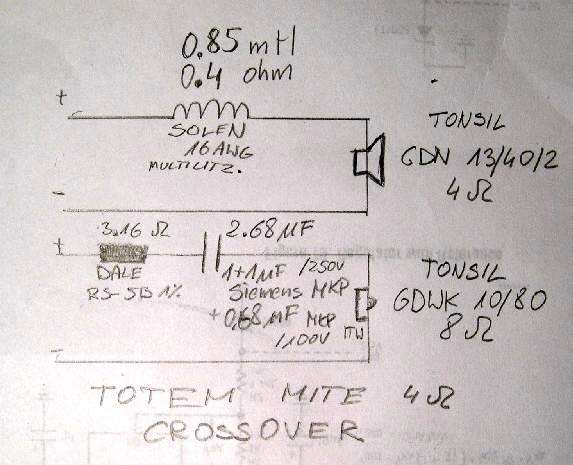 0.85 mH
0.4 ohm
+
SOLEN
16 AWG
MULTILITZ.
TONSIL
GDN 13/40/2
4 Ω
-
3.16 Ω
2.68µF
+
DALE
RS-5B 1%
1+1µF /250V
Siemens MKP
+0,68µF MKP
/100V
TONSIL
GDWK 10/80
8 Ω
-
TOTEM MITE 4 Ω
CROSSOVER